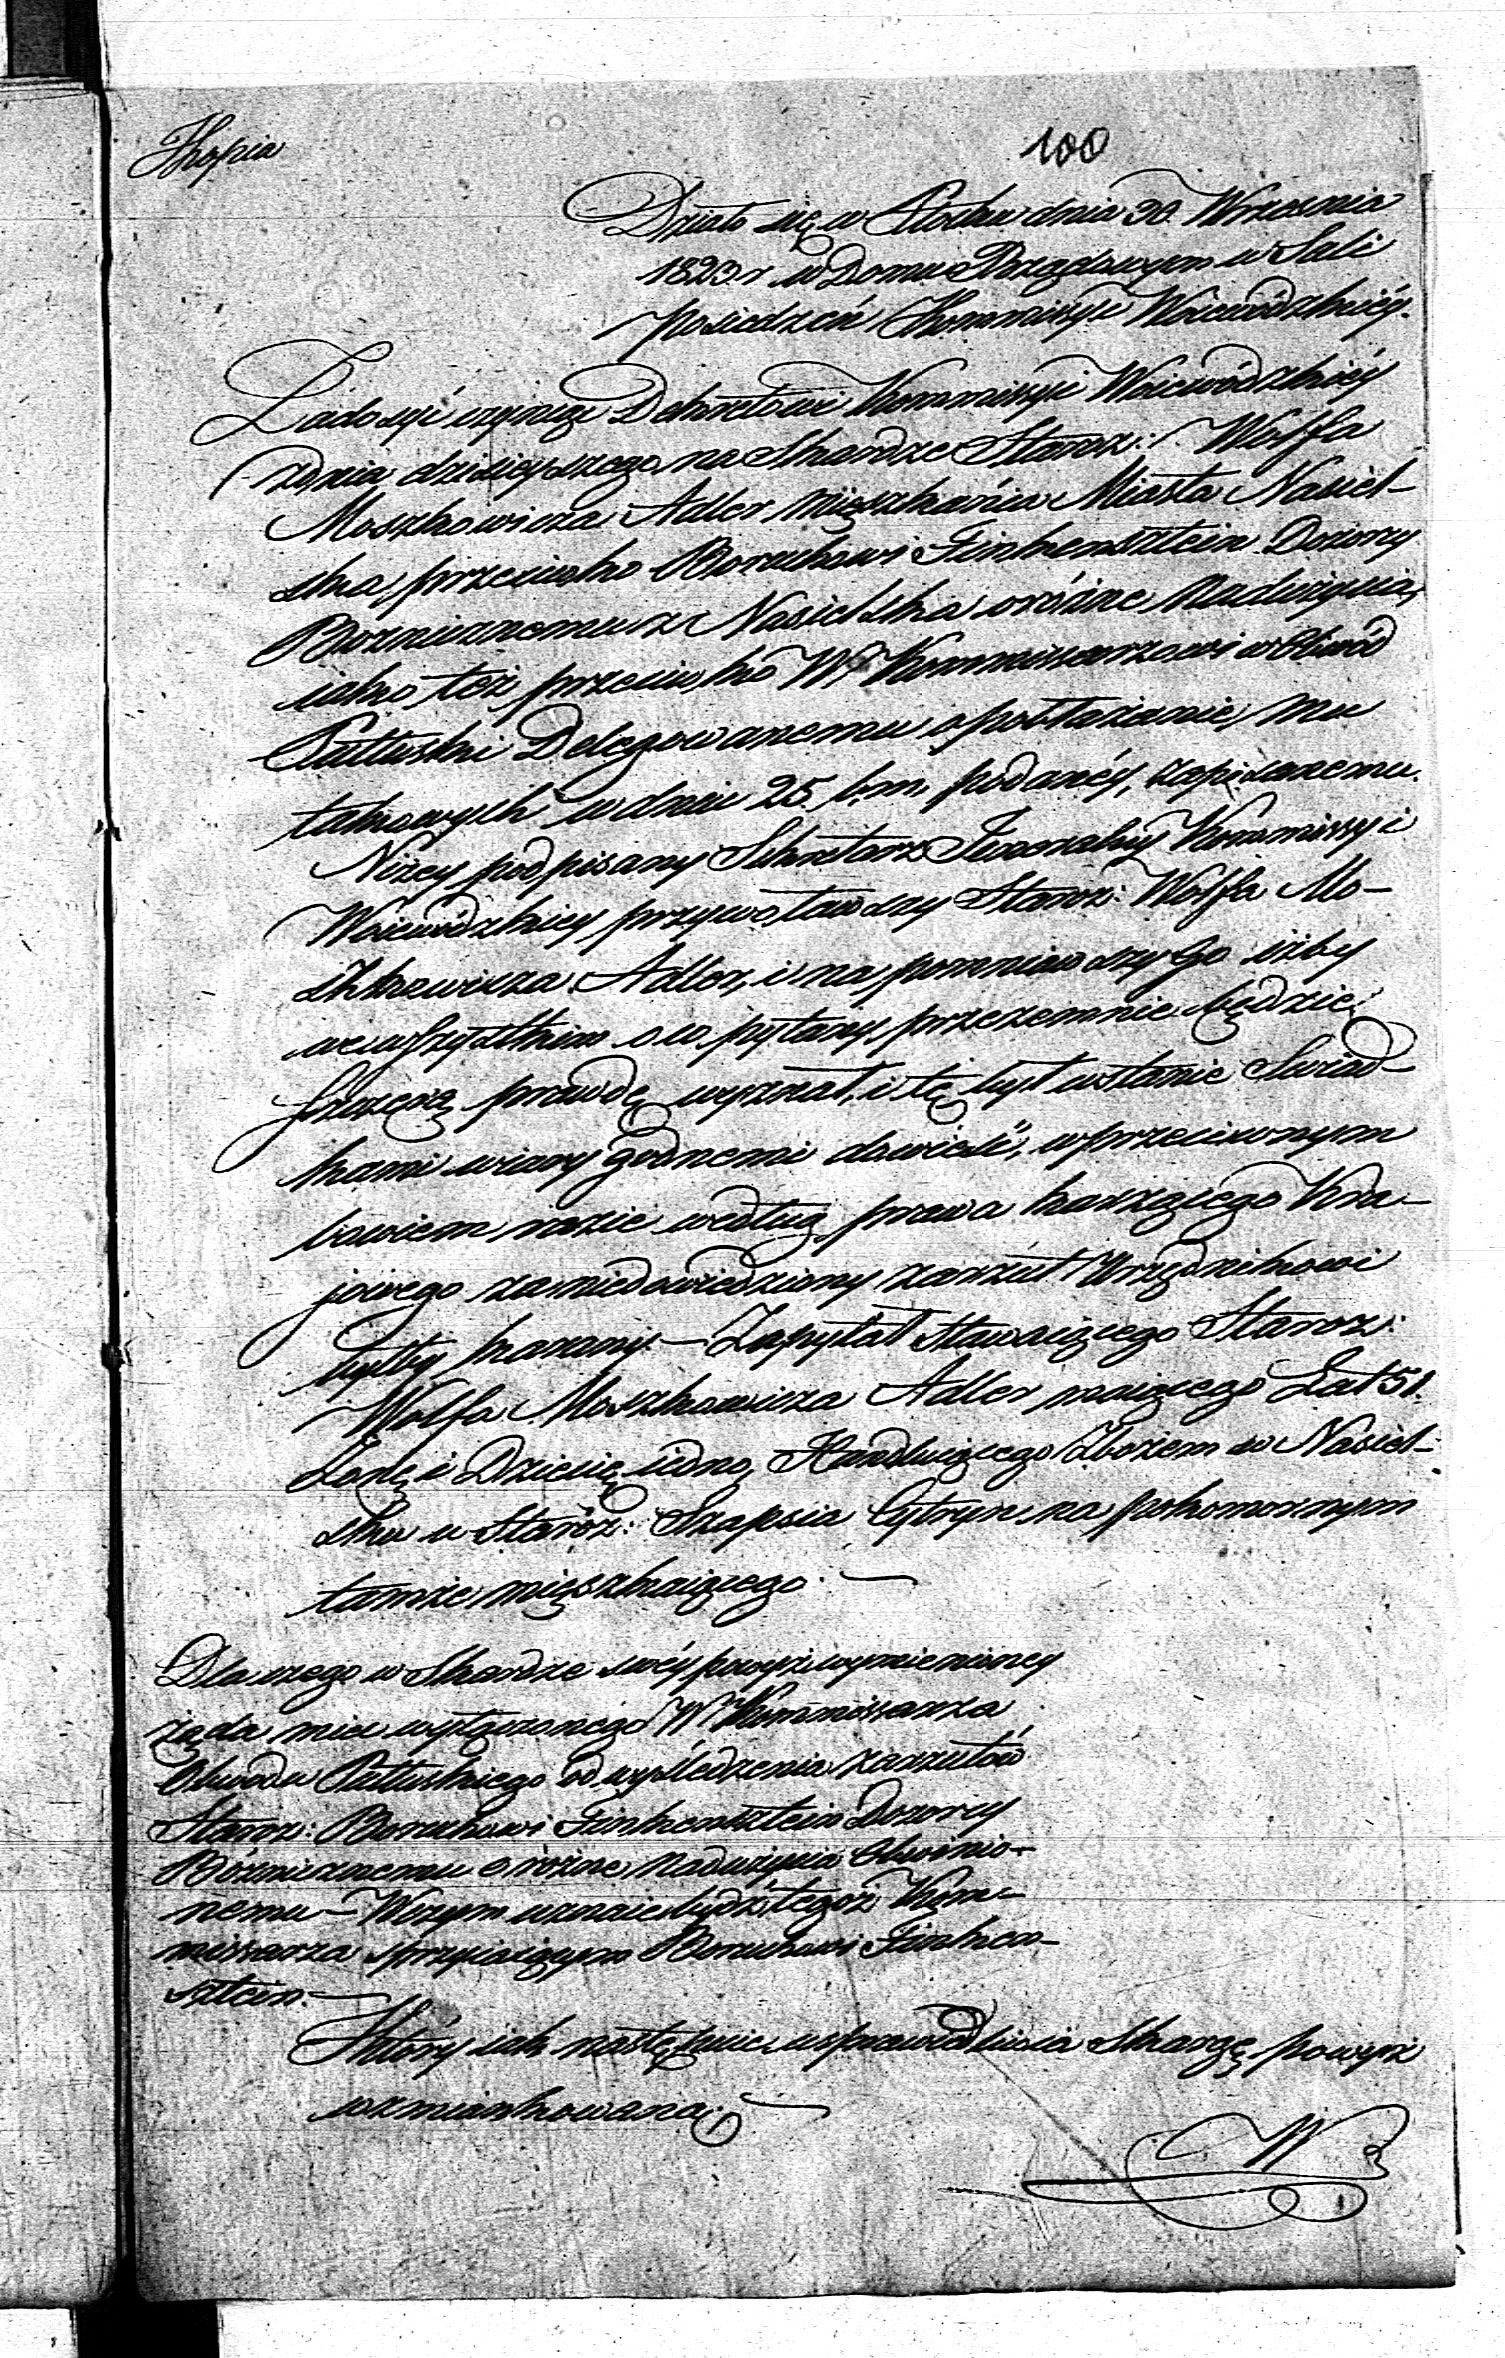 Kopia
100
Działo się w Płocku dnia 30 Wrzesnia
1823 r w Domu Rządowym w Sali
posiedzeń Kommissyi Woiewódzkiéy.
Zadosyć czyniąc Dekretowi Kommissyi Woiewódzkiéy
z dnia dzisieyszego na Skardze Staroz: Wolfa
Moszkowicza Adler, mięszkańca Miasta Nasiel-
ska, przeciwko Boruchowi Finkensztein Dozorcy
Bożnicznemu z Nasielska o różne Nadużycia,
iako też przeciwko W. Kommissarzowi w Obwód
Pułtuski Delegowanemu o pobłażanie mu
takowych w dniu 25 b.m. podanéy, zapisanemu.
Niżey podpisany Sekretarz Jeneralny Kommissyi
Woiewódzkiey przywoławszy Staroz: Wolfa Mo-
szkowicza Adler, i napomniawszy Go iżby
we wszystkim o co pytany przezemnie będzie
szczerą prawdę wyznał, i tę był wstanie Swiad-
kami wiary godnemi dowieść, w przeciwnym
bowiem razie według prawa karzącego Kra-
jowego za niedowiedziony zarzut Urzędnikowi
byłby karany. — Zapytał stawaiącego Staroz:
Wolfa Moszkowicza Adler maiącego Lat 51.
Żonę i Dziecię iedno, Handluiącego Zbożem w Nasiel-
sku u Staroz: Szapsia Cytryn na pokomornym
tamże mięszkaiącego. —
Dla czego w Skardze swéy powyż wymienioney
żąda mieć wyłączonego W Kommissarza
Obwodu Pułtuskiego od wyśledzenia zarzutów
Staroz: Boruchowi Finkensztein Dozorcy
Bóżnicznemu o rożne Nadużycia Obwinio-
nemu — W czym uznaie bydź tegoż Kom-
missarza sprzyiaiącym Boruchowi Finken-
sztein. —
Który iak następuie usprawiedliwia Skargę powyż
wzmiankowaną. —